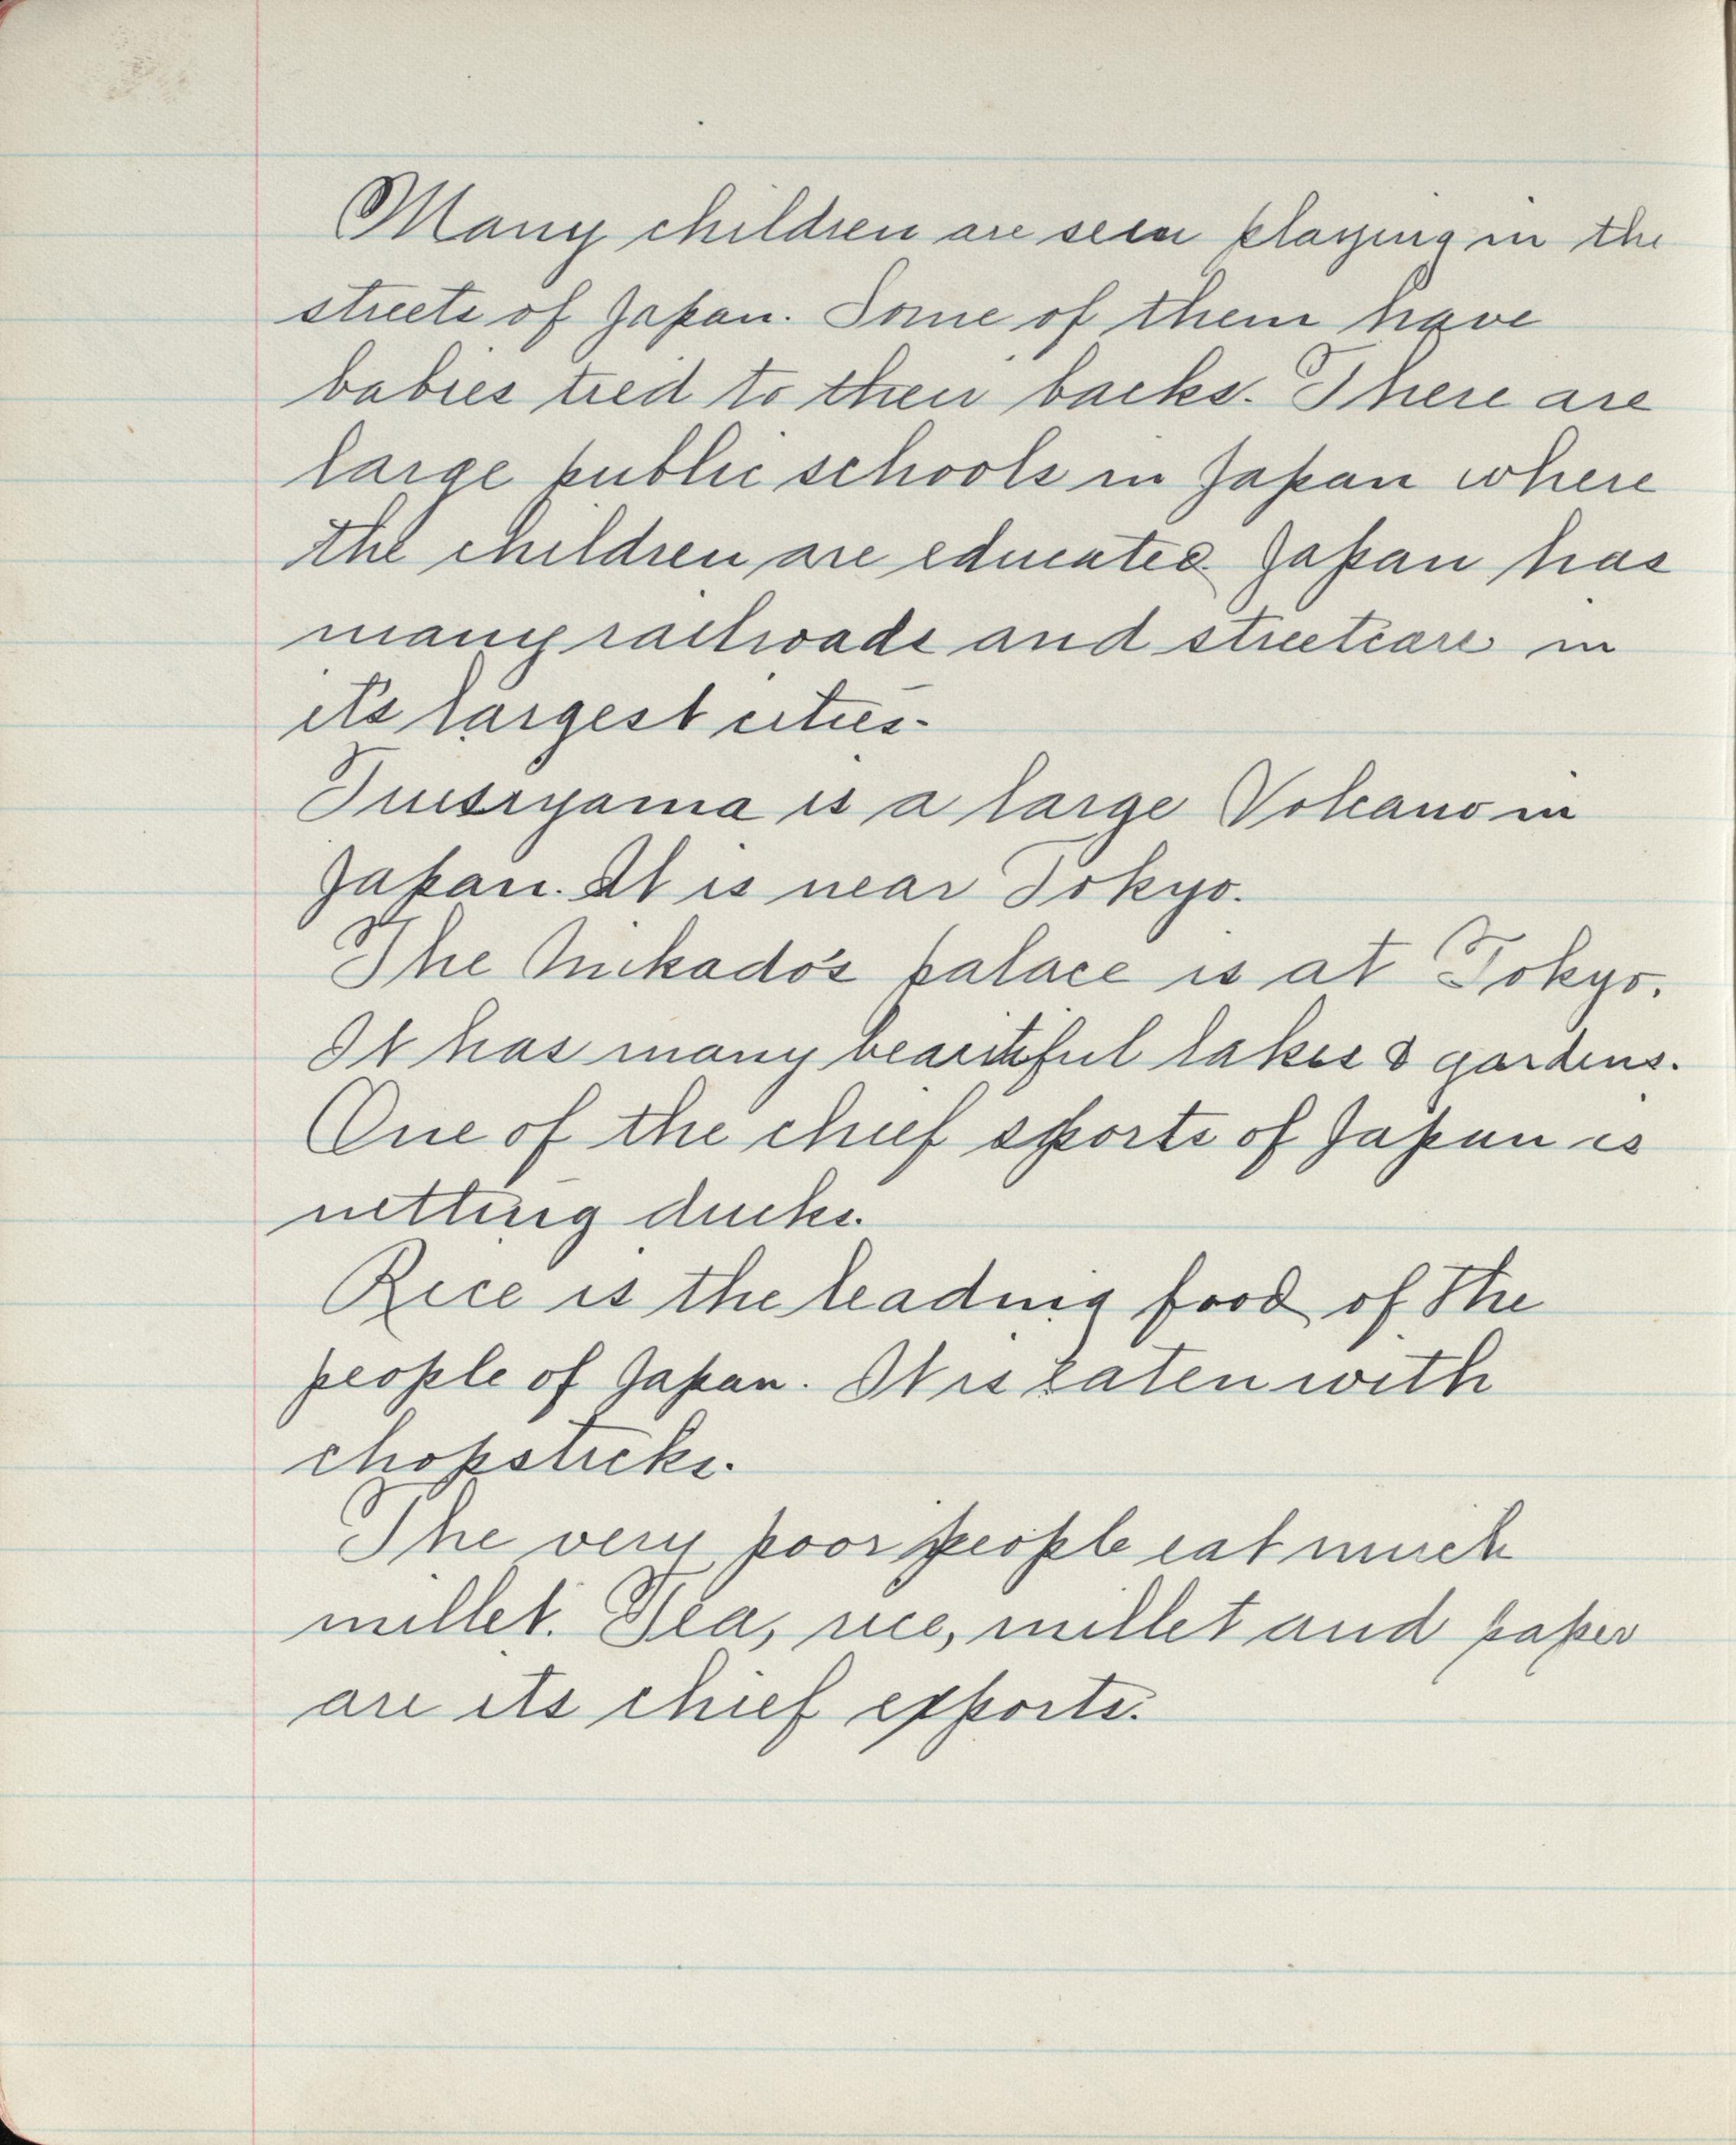 Many children are seen playing in the
streets of Japan. Some of them have
babies tied to their backs. There are
large public schools in Japan where
the children are educated. Japan has
many railroads and streetcars in
it's largest cities.
is a large Volcano in
Japan. It is near Tokyo.
The Mikado's palace is at Tokyo.
It has many beautiful lakes & gardens.
One of the chief sports of Japan is
netting ducks.
Rice is the leading food of the
people of Japan. It is eaten with
chopsticks.
The very poor people eat much
millet. Tea, rice, millet and paper
are its chief exports.